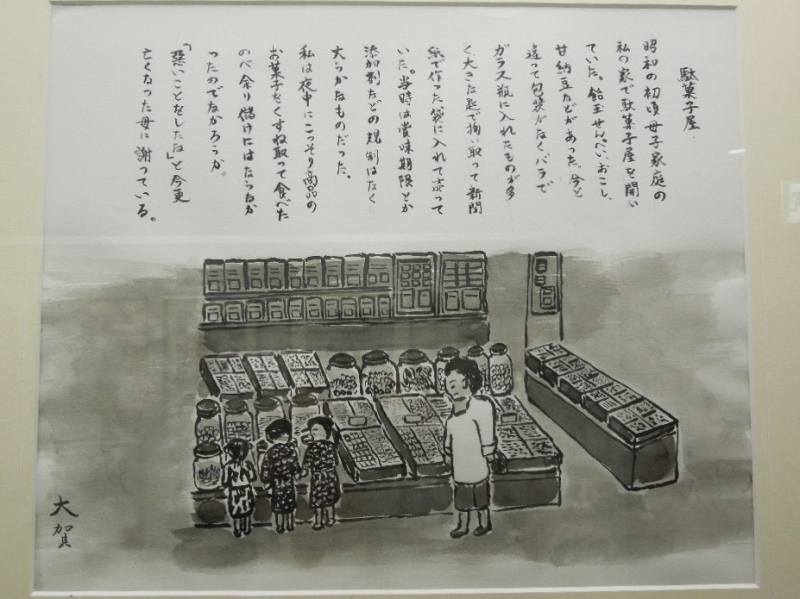 駄菓子屋
昭和の初頃母子家庭の
私の家で駄菓子屋を開い
ていた。飴玉せんべい、おこし、
甘納豆などがあった。今と
違って包装がなくバラで
ガラス瓶に入れたものが多
く、大きな匙で掬い取って新聞
紙で作った袋に入れて売って
いた。当時は賞味期限とか
添加剤などの規制はなく
大らかなものだった。
私は夜中にこっそり商品の
お菓子をくすね取って食べた
のべ余り儲けにはならなか
ったのでなかろうか。
「悪いことをしたね」と今更
亡くなった母に謝っている。
大賀